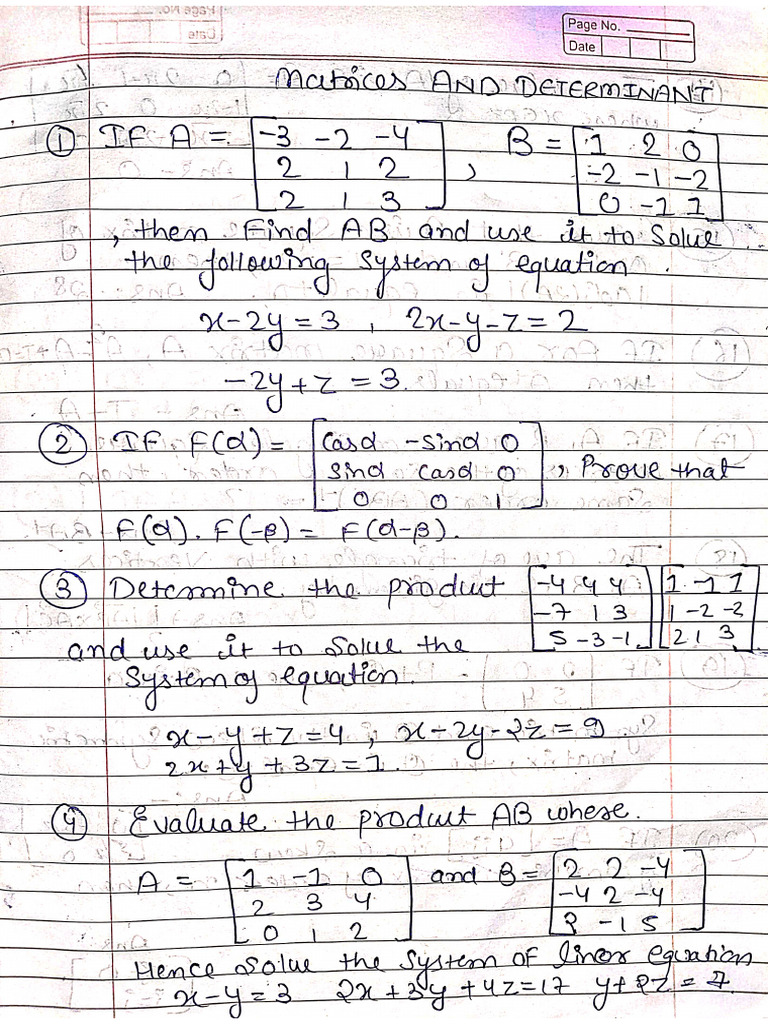 Page No.
Date
Matrices AND DETERMINANT
① IF A = [-3 -2 -4
2 1 2
2 1 3] , B = [1 2 0
-2 -1 -2
0 -1 1]
, then Find AB and use it to Solue
the following System of equation.
x-2y=3 , 2x-y-z=2
-2y+z=3.
② IF F(α) = [cosα -sinα 0
sinα cosα 0
0 0 1] , Prove that
F(α). F(-β) = F(α-β).
③ Determine the product [-4 4 4
-7 1 3
5 -3 -1] [1 -1 1
1 -2 -2
2 1 3]
and use it to solue the
System of equation.
x-y+z=4 , x-2y-2z=9
2x+y+3z=1.
④ Evaluate the product AB where.
A = [1 -1 0
2 3 4
0 1 2] and B = [2 2 -4
-4 2 -4
2 -1 5]
Hence solue the System of linear equation
x-y=3 2x+3y+4z=17 y+2z=7